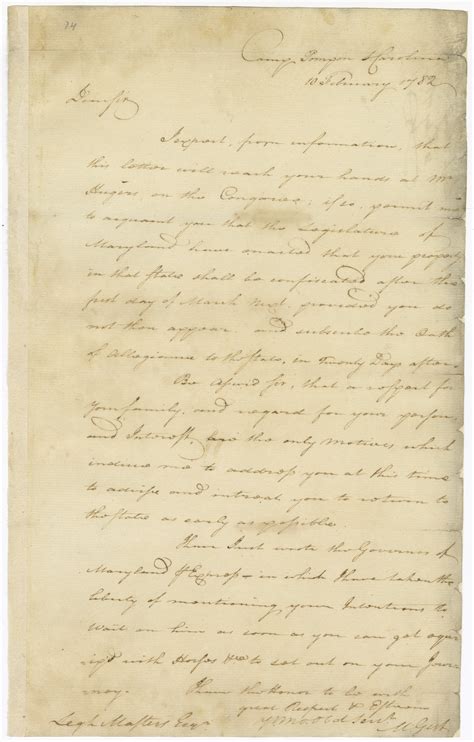 74
Camp Pompon S Carolina
10 February 1782
Dear Sir
I expect, from information, that
this letter will reach your hands at Mr
Hugers, on the Congaree; if so, permit me
to acquaint you that the Legislature of
Maryland have enacted that your property
in that State shall be confiscated after the
first day of March Next, provided you do
not then appear, and subscribe the Oath
of Allegiance to the State, in Twenty Days after.
Be assured Sir, that a respect for
your family, and regard for your person,
and Interest, are the only Motives which
induce me to address you at this time
to advise and intreat you to return to
the State as early as possible.
I have Just wrote the Governor of
Maryland Express in which I have taken the
liberty of mentioning, your Intentions to
Wait on him as soon as you can get equi
with Horses &c to set out on your Jour
ney. I have the Honor to be with
great Respect & Esteem
Obd Servt
Legh Masters Esqr M Gist